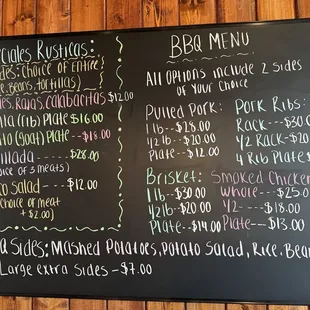 ciales Rusticas:
des: Choice of Entree's
e, Beans, tortillas)
des, Rajas, Calabacitas $12.00
lla (rib) Plate $16.00
to (Goat) Plate -- $18.00
llada ---- $28.00
oice of 3 meats)
co Salad ---- $12.00
choice or meat
+ $2.00)
BBQ MENU
All options include 2 sides
of your choice
Pulled Pork:
1 lb -- $28.00
1/2 lb -- $20.00
Plate -- $12.00
Pork Ribs:
Rack -- $30.0
1/2 Rack -- $20
4 Rib Plate $
Brisket:
1 lb -- $30.00
1/2 lb -- $20.00
Plate -- $14.00
Smoked Chicken
Whole --- $25.0
1/2 ---- $18.00
Plate --- $13.00
a Sides: Mashed Potatoes, Potato Salad, Rice, Bean
Large extra sides - $7.00